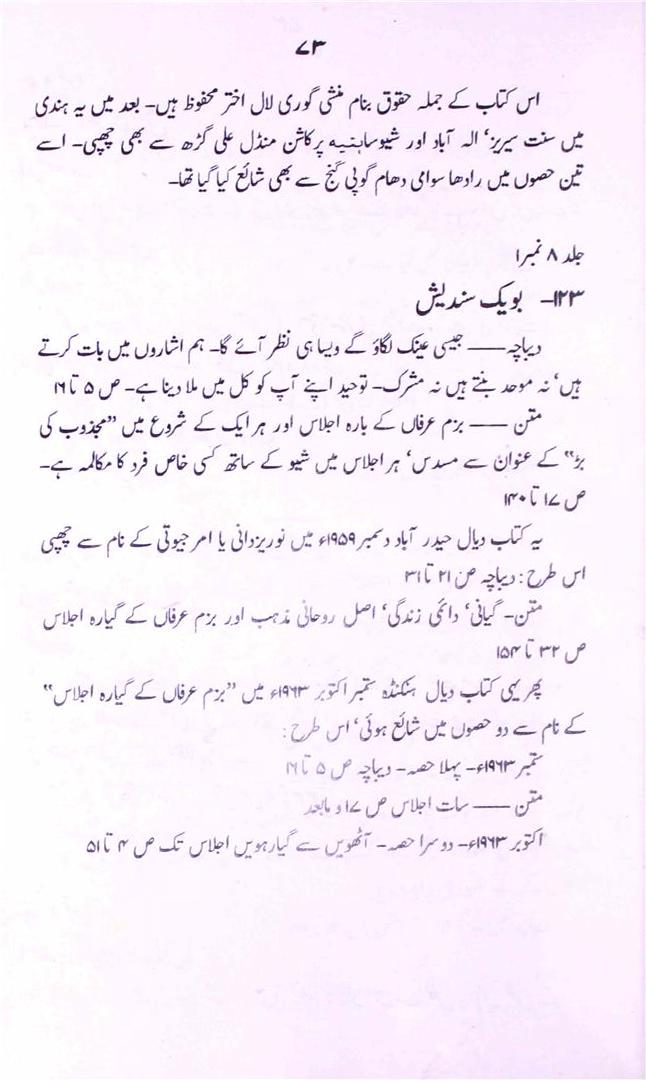 ۷۳
اس کتاب کے جملہ حقوق بنام منشی گوری لال اختر محفوظ ہیں۔ بعد میں یہ ہندی
میں سنت سیریز‘ الہ آباد اور شیوساہتیہ پرکاشن منڈل علی گڑھ سے بھی چھپی۔ اسے
تین حصوں میں رادھا سوامی دھام گوپی گنج سے بھی شائع کیا گیا تھا۔
جلد ۸ نمبر۱
۱۲۳۔ بویک سندیش
دیباچہ ــــ جیسی عینک لگاؤ گے ویسا ہی نظر آئے گا۔ ہم اشاروں میں بات کرتے
ہیں‘ نہ موحد بنتے ہیں نہ مشرک۔ توحید اپنے آپ کو کل میں ملا دینا ہے۔ ص ۵ تا ۱۶
متن ــــ بزم عرفاں کے بارہ اجلاس اور ہر ایک کے شروع میں ”مجذوب کی
بڑ“ کے عنوان سے مسدس‘ ہر اجلاس میں شیو کے ساتھ کسی خاص فرد کا مکالمہ ہے۔
ص ۱۷ تا ۱۴۰
یہ کتاب دیال حیدر آباد دسمبر ۱۹۵۹ء میں نوریزدانی یا امر جیوتی کے نام سے چھپی
اس طرح : دیباچہ ص ۲۱ تا ۳۱
متن۔ گیانی‘ دائمی زندگی‘ اصل روحانی مذہب اور بزم عرفاں کے گیارہ اجلاس
ص ۳۲ تا ۱۵۴
پھر یہی کتاب دیال ہنکنڈہ ستمبر اکتوبر ۱۹۶۳ء میں ”بزم عرفاں کے گیارہ اجلاس“
کے نام سے دو حصوں میں شائع ہوئی‘ اس طرح :
ستمبر ۱۹۶۳ء۔ پہلا حصہ۔ دیباچہ ص ۵ تا ۱۶
متن ــــ سات اجلاس ص ۱۷ و مابعد
اکتوبر ۱۹۶۳ء۔ دوسرا حصہ۔ آٹھویں سے گیارہویں اجلاس تک ص ۴ تا ۵۱